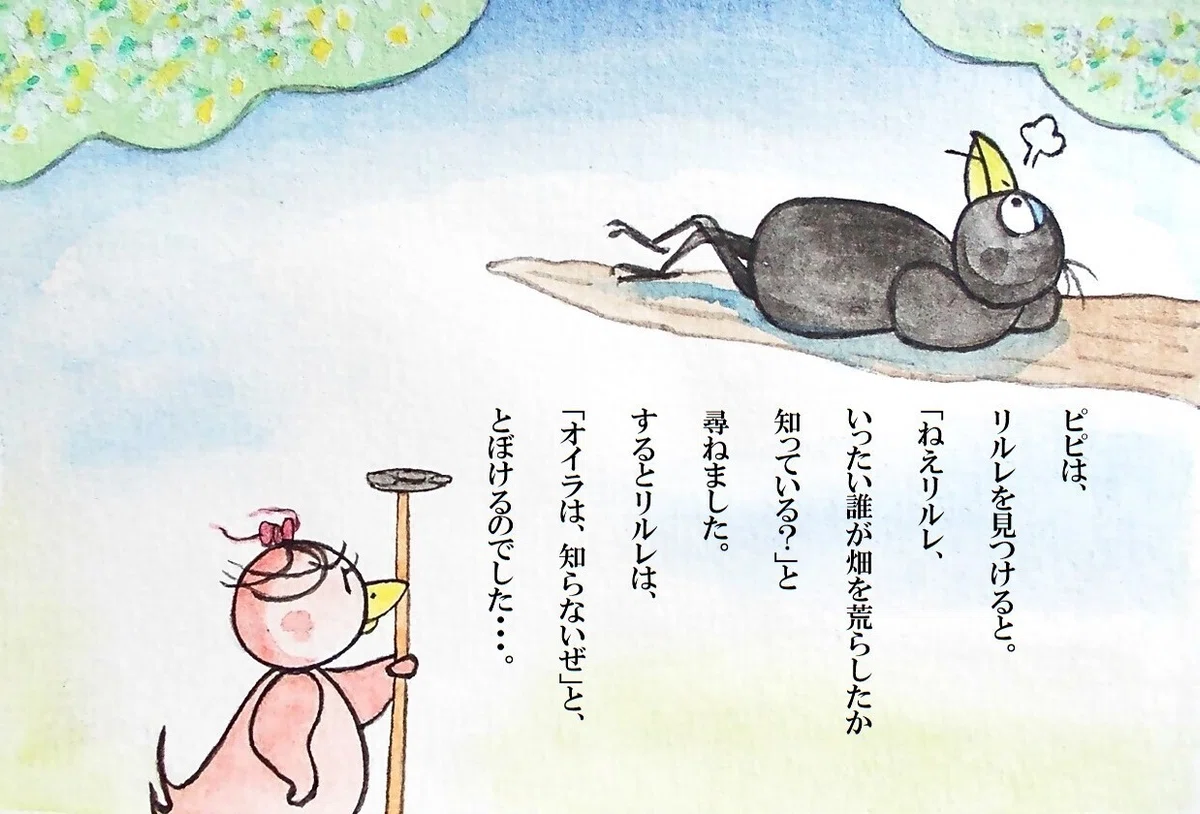 ピピは、
リルレを見つけると。
「ねえリルレ、
いったい誰が畑を荒らしたか
知っている？」と
尋ねました。
するとリルレは、
「オイラは、知らないぜ」と、
とぼけるのでした・・・。